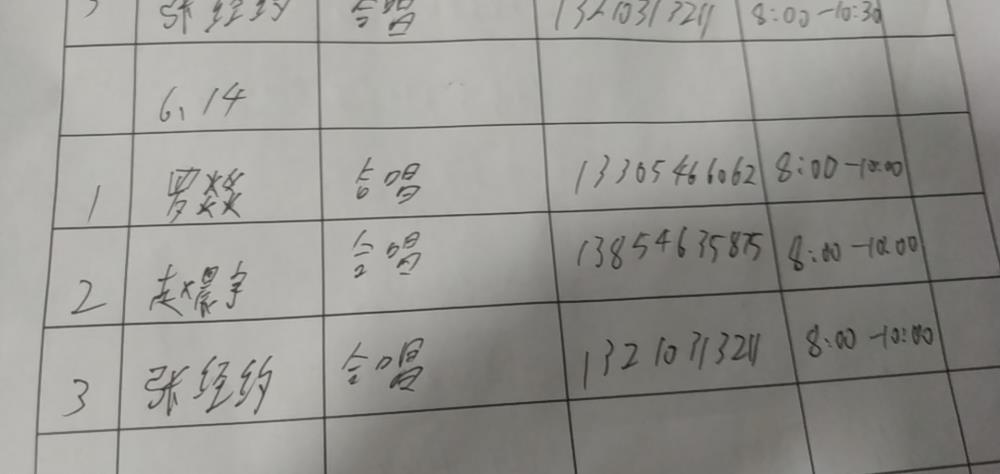 张经纶 合唱 13210313211 8:00-10:30
6、14
1 罗燚 合唱 13305466062 8:00-10:00
2 赵晨宇 合唱 13854635875 8:00-10:00
3 张经纶 合唱 13210313211 8:00-10:00